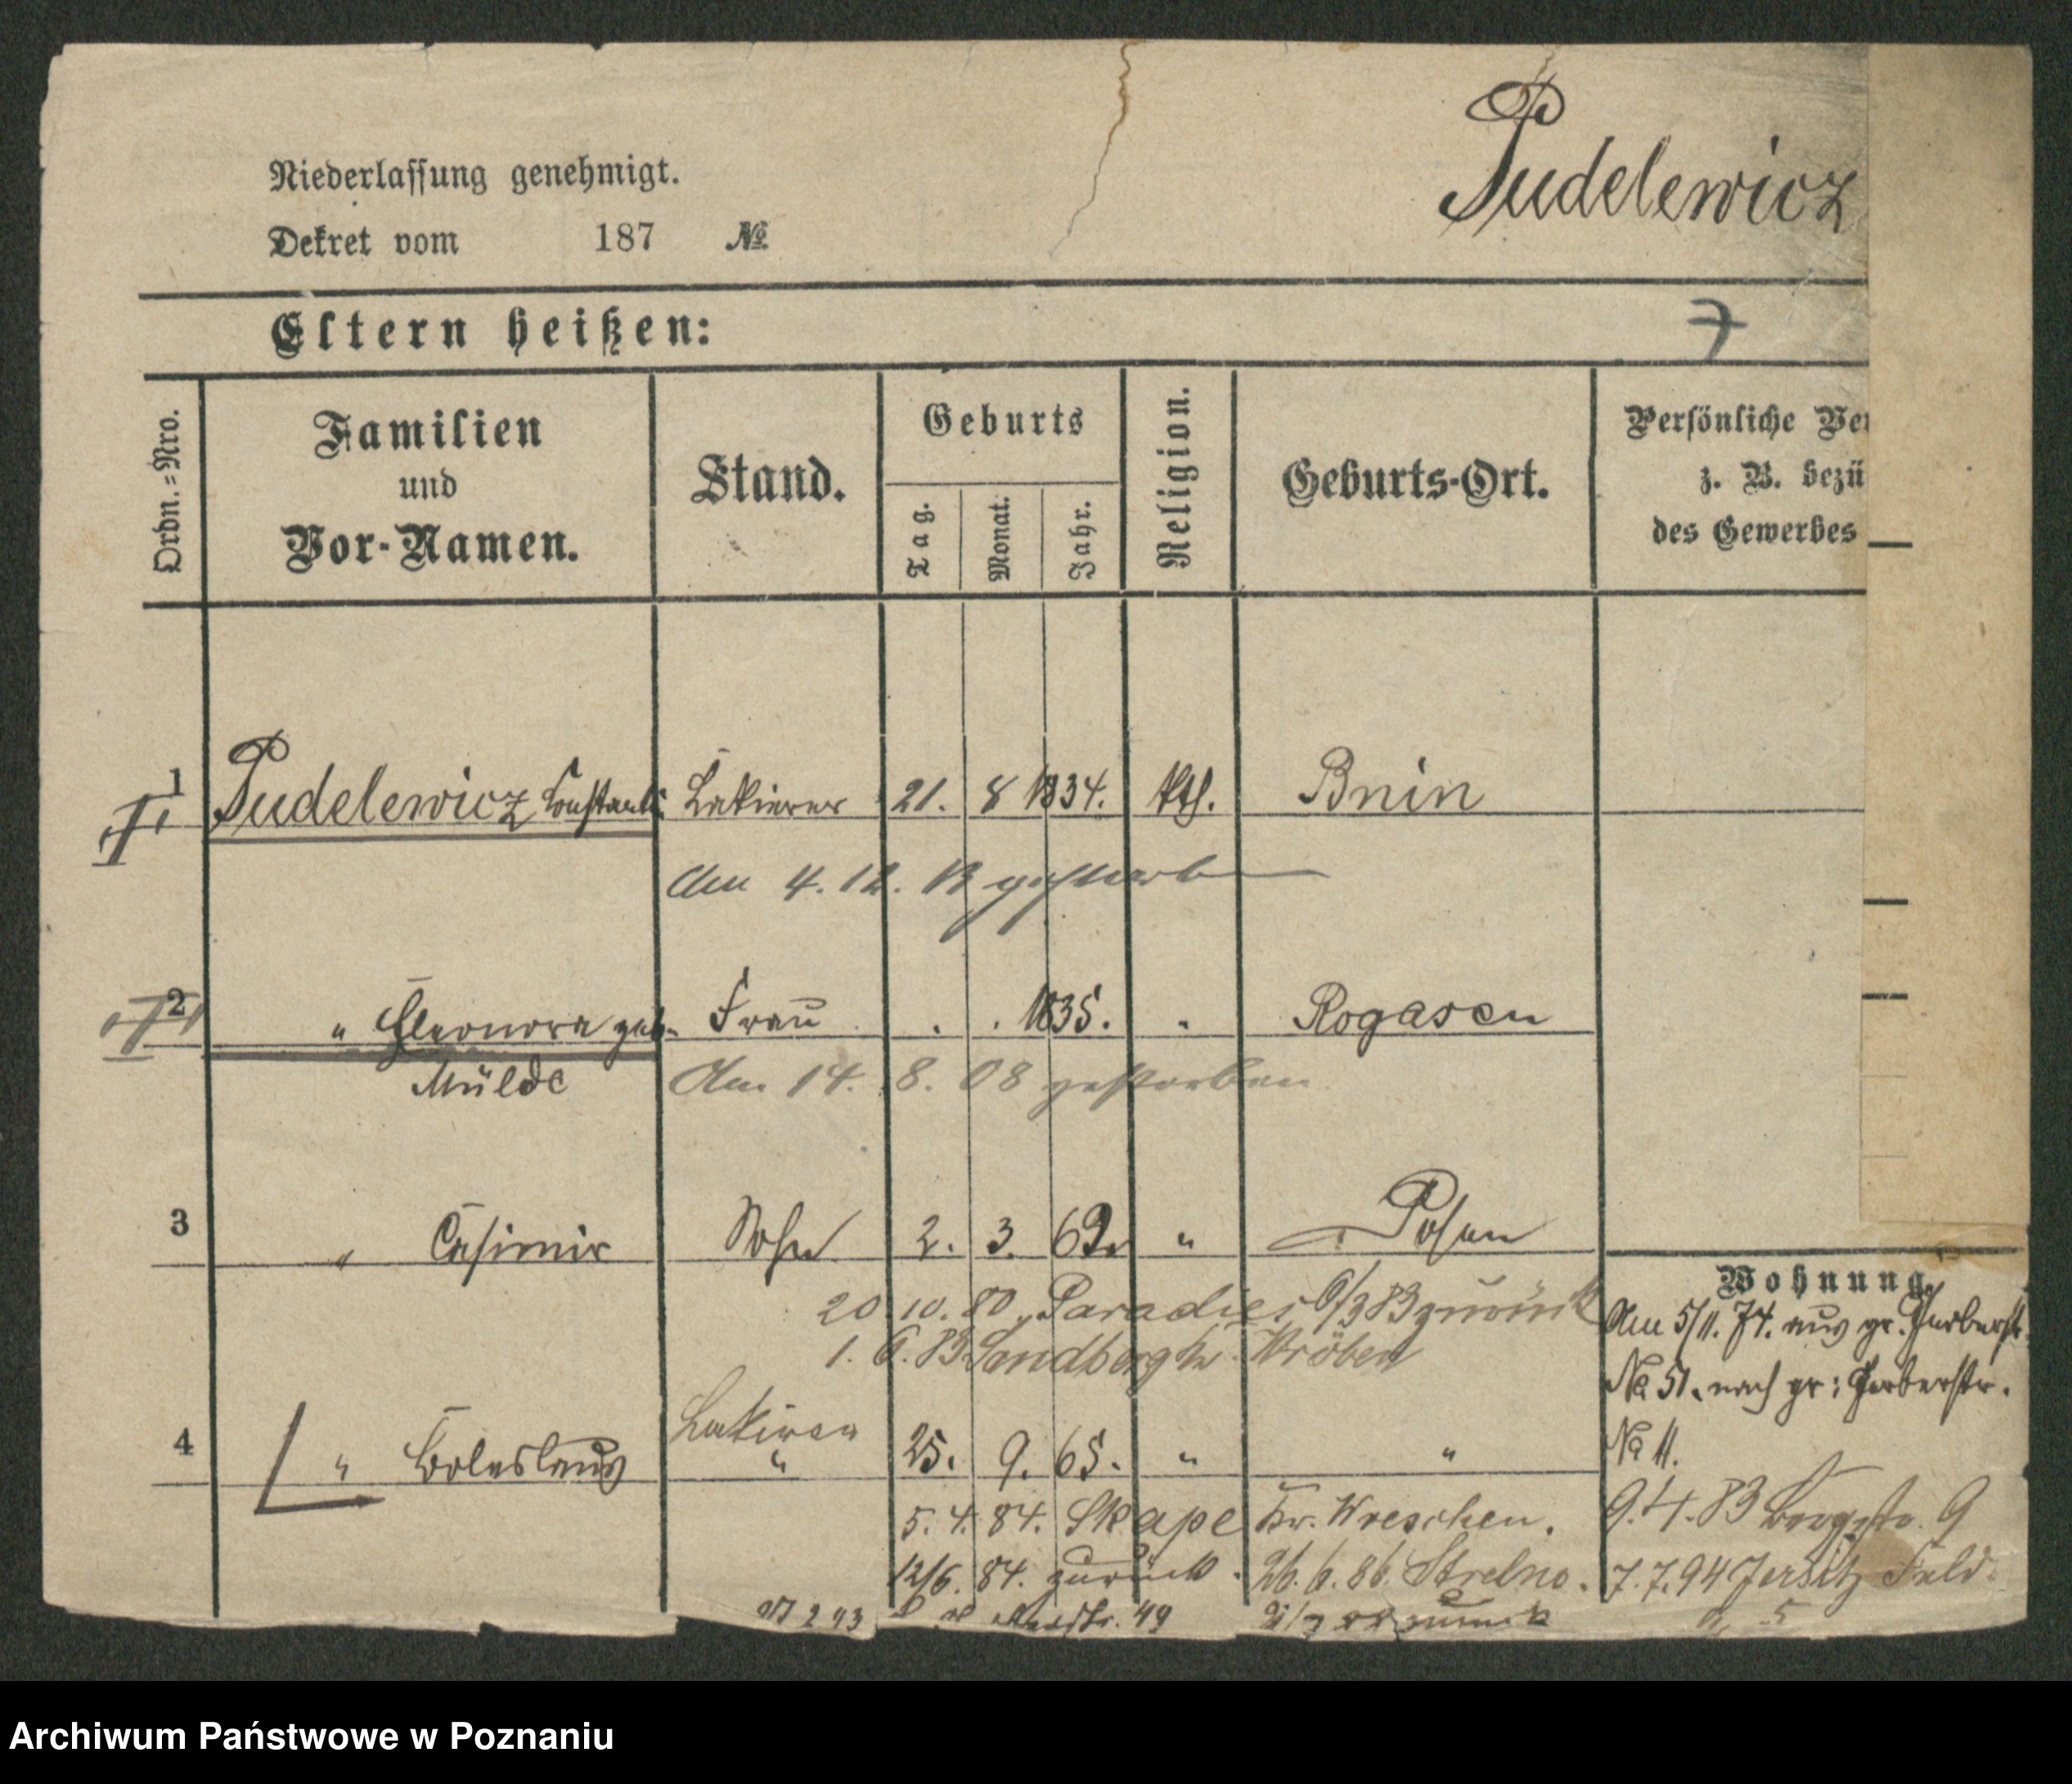 Pudelewicz
Niederlassung genehmigt.
Dekret vom 187 №
Eltern heißen:
7
Ordn.=Nro.
Familien
und
Vor-Namen.
Stand.
Geburts
Tag.
Monat.
Jahr.
Religion.
Geburts-Ort.
Persönliche Ver
z. B. bezü
des Gewerbes
1 Pudelewicz Constantin Lakierer 21. 8 1834. kth. Bnin
Am 4. 12. 13 gestorben
2 " Eleonora geb. Frau . . 1835. " Rogasen
Mülde Am 14. 8. 08 gestorben
3 " Casimir Sohn 2. 3. 69. " Posen
20. 10. 80. Paradies 6/3 83 zurück
1. 6. 83 Sandberg Kr. Kröben
Lakirer
4 " Boleslaus " 25. 9. 65. " "
5. 4. 84. Skape Kr. Wreschen.
12/6. 84. zurück. 26. 6. 86. Strelno.
49 zurück
Wohnung.
Am 5/11. 74. aus gr. Gerberstr.
No 51. nach gr: Gerberstr.
No 11.
9. 4. 83 Bergstr. 9
7. 7. 94 Jersitz Feld-
5
Archiwum Państwowe w Poznaniu